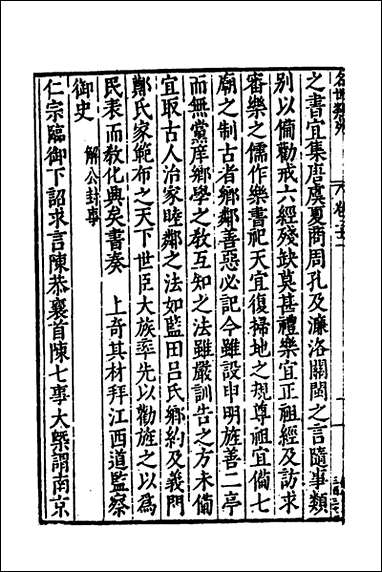 名世類苑
之書宜集唐虞夏商周孔及濂洛關閩之言隨事類
别以備勸戒六經殘缺莫甚禮樂宜正祖經及訪求
審樂之儒作樂書祀天宜復掃地之規尊祖宜備七
廟之制古者鄉鄰善惡必記今雖設申明旌善二亭
而無黨庠鄉學之教互知之法雖嚴訓告之方未備
宜取古人治家睦鄰之法如藍田吕氏鄉約及義門
鄭氏家範布之天下世臣大族率先以勸旌之以為
民表而教化興矣書奏　上奇其材拜江西道監察
御史　解公封事
仁宗臨御下詔求言陳恭襄首陳七事大槩謂南京